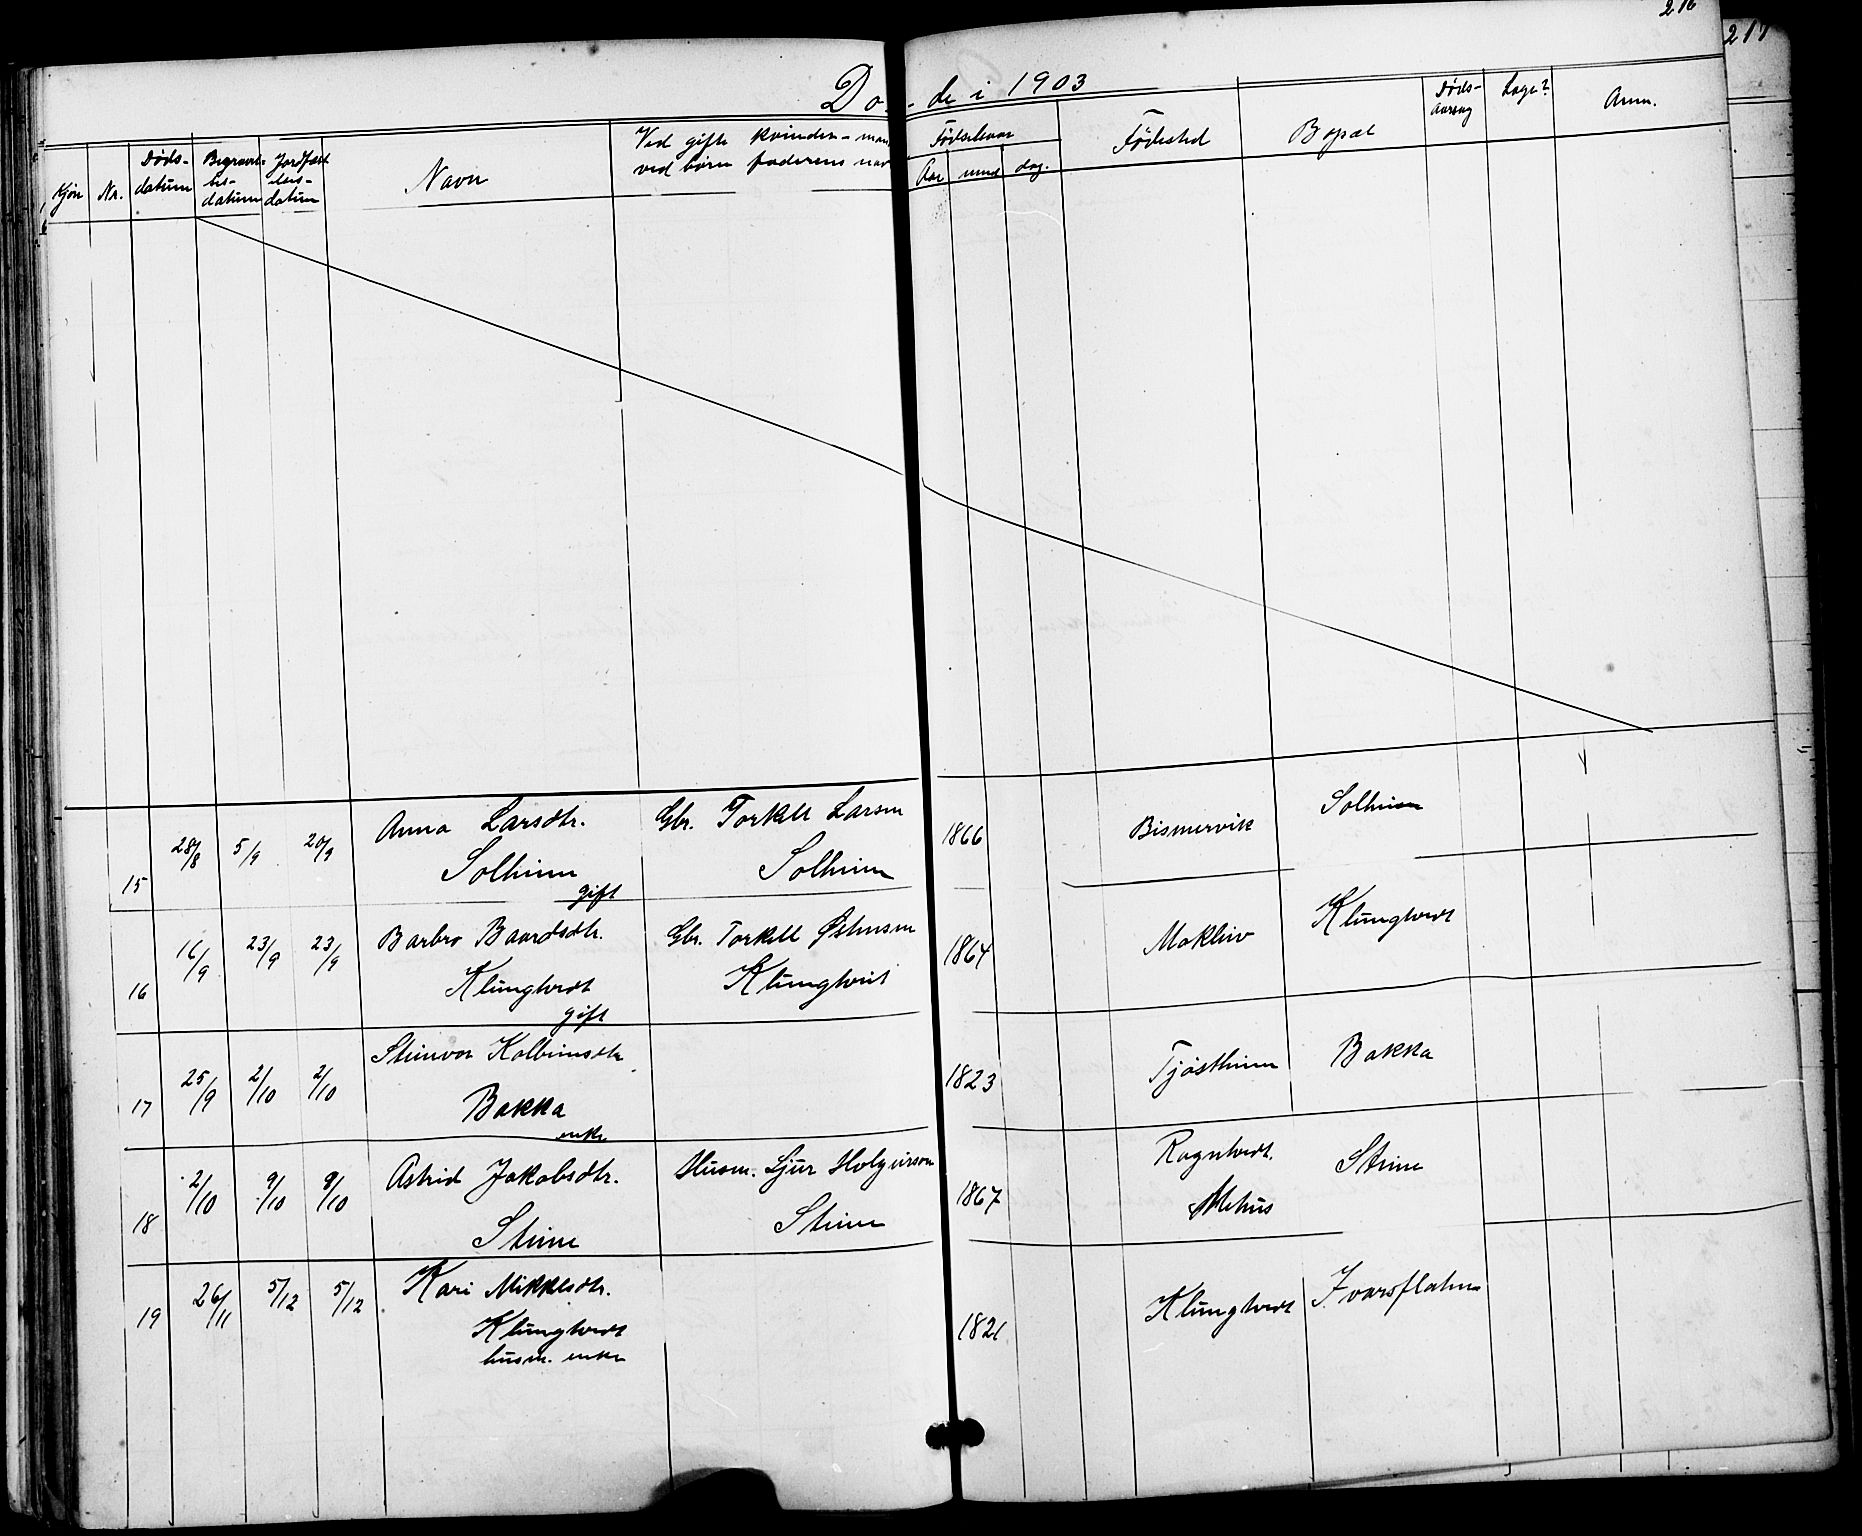 216
217
Do- de i 1903
Kjøn Nr. Døds-datum Begravel-ses-datum Jordfæst-elses-datum Navn Ved gifte kvinder - man ved børn faderens nav Fødselsaar Aar mnd dag. Fødested Bopæl Døds-aarsag Læge? Anm.
15 28/8 5/9 20/9 Anna Larsdtr. Gbr. Torkell Larsen 1866 Bismervik Solheim
Solheim Solheim
gift
16 16/9 23/9 23/9 Barbro Baardsdtr. Gbr. Torkell Østensen 1864 Mokleiv Klungtvedt
Klungtvedt Klungtveit
gift
17 25/9 2/10 2/10 Steinvor Kolbeinsdtr 1823 Tjøstheim Bakka
Bakka
enke
18 2/10 9/10 9/10 Astrid Jakobsdtr. Husm. Sjur Holgeirson 1867 Ragntvedt. Steine
Steine Steine Mehus
19 26/11 5/12 5/12 Kari Mikkelsdtr. 1821 Klungtvedt Ivarsflaten
Klungtvedt
husm. enke